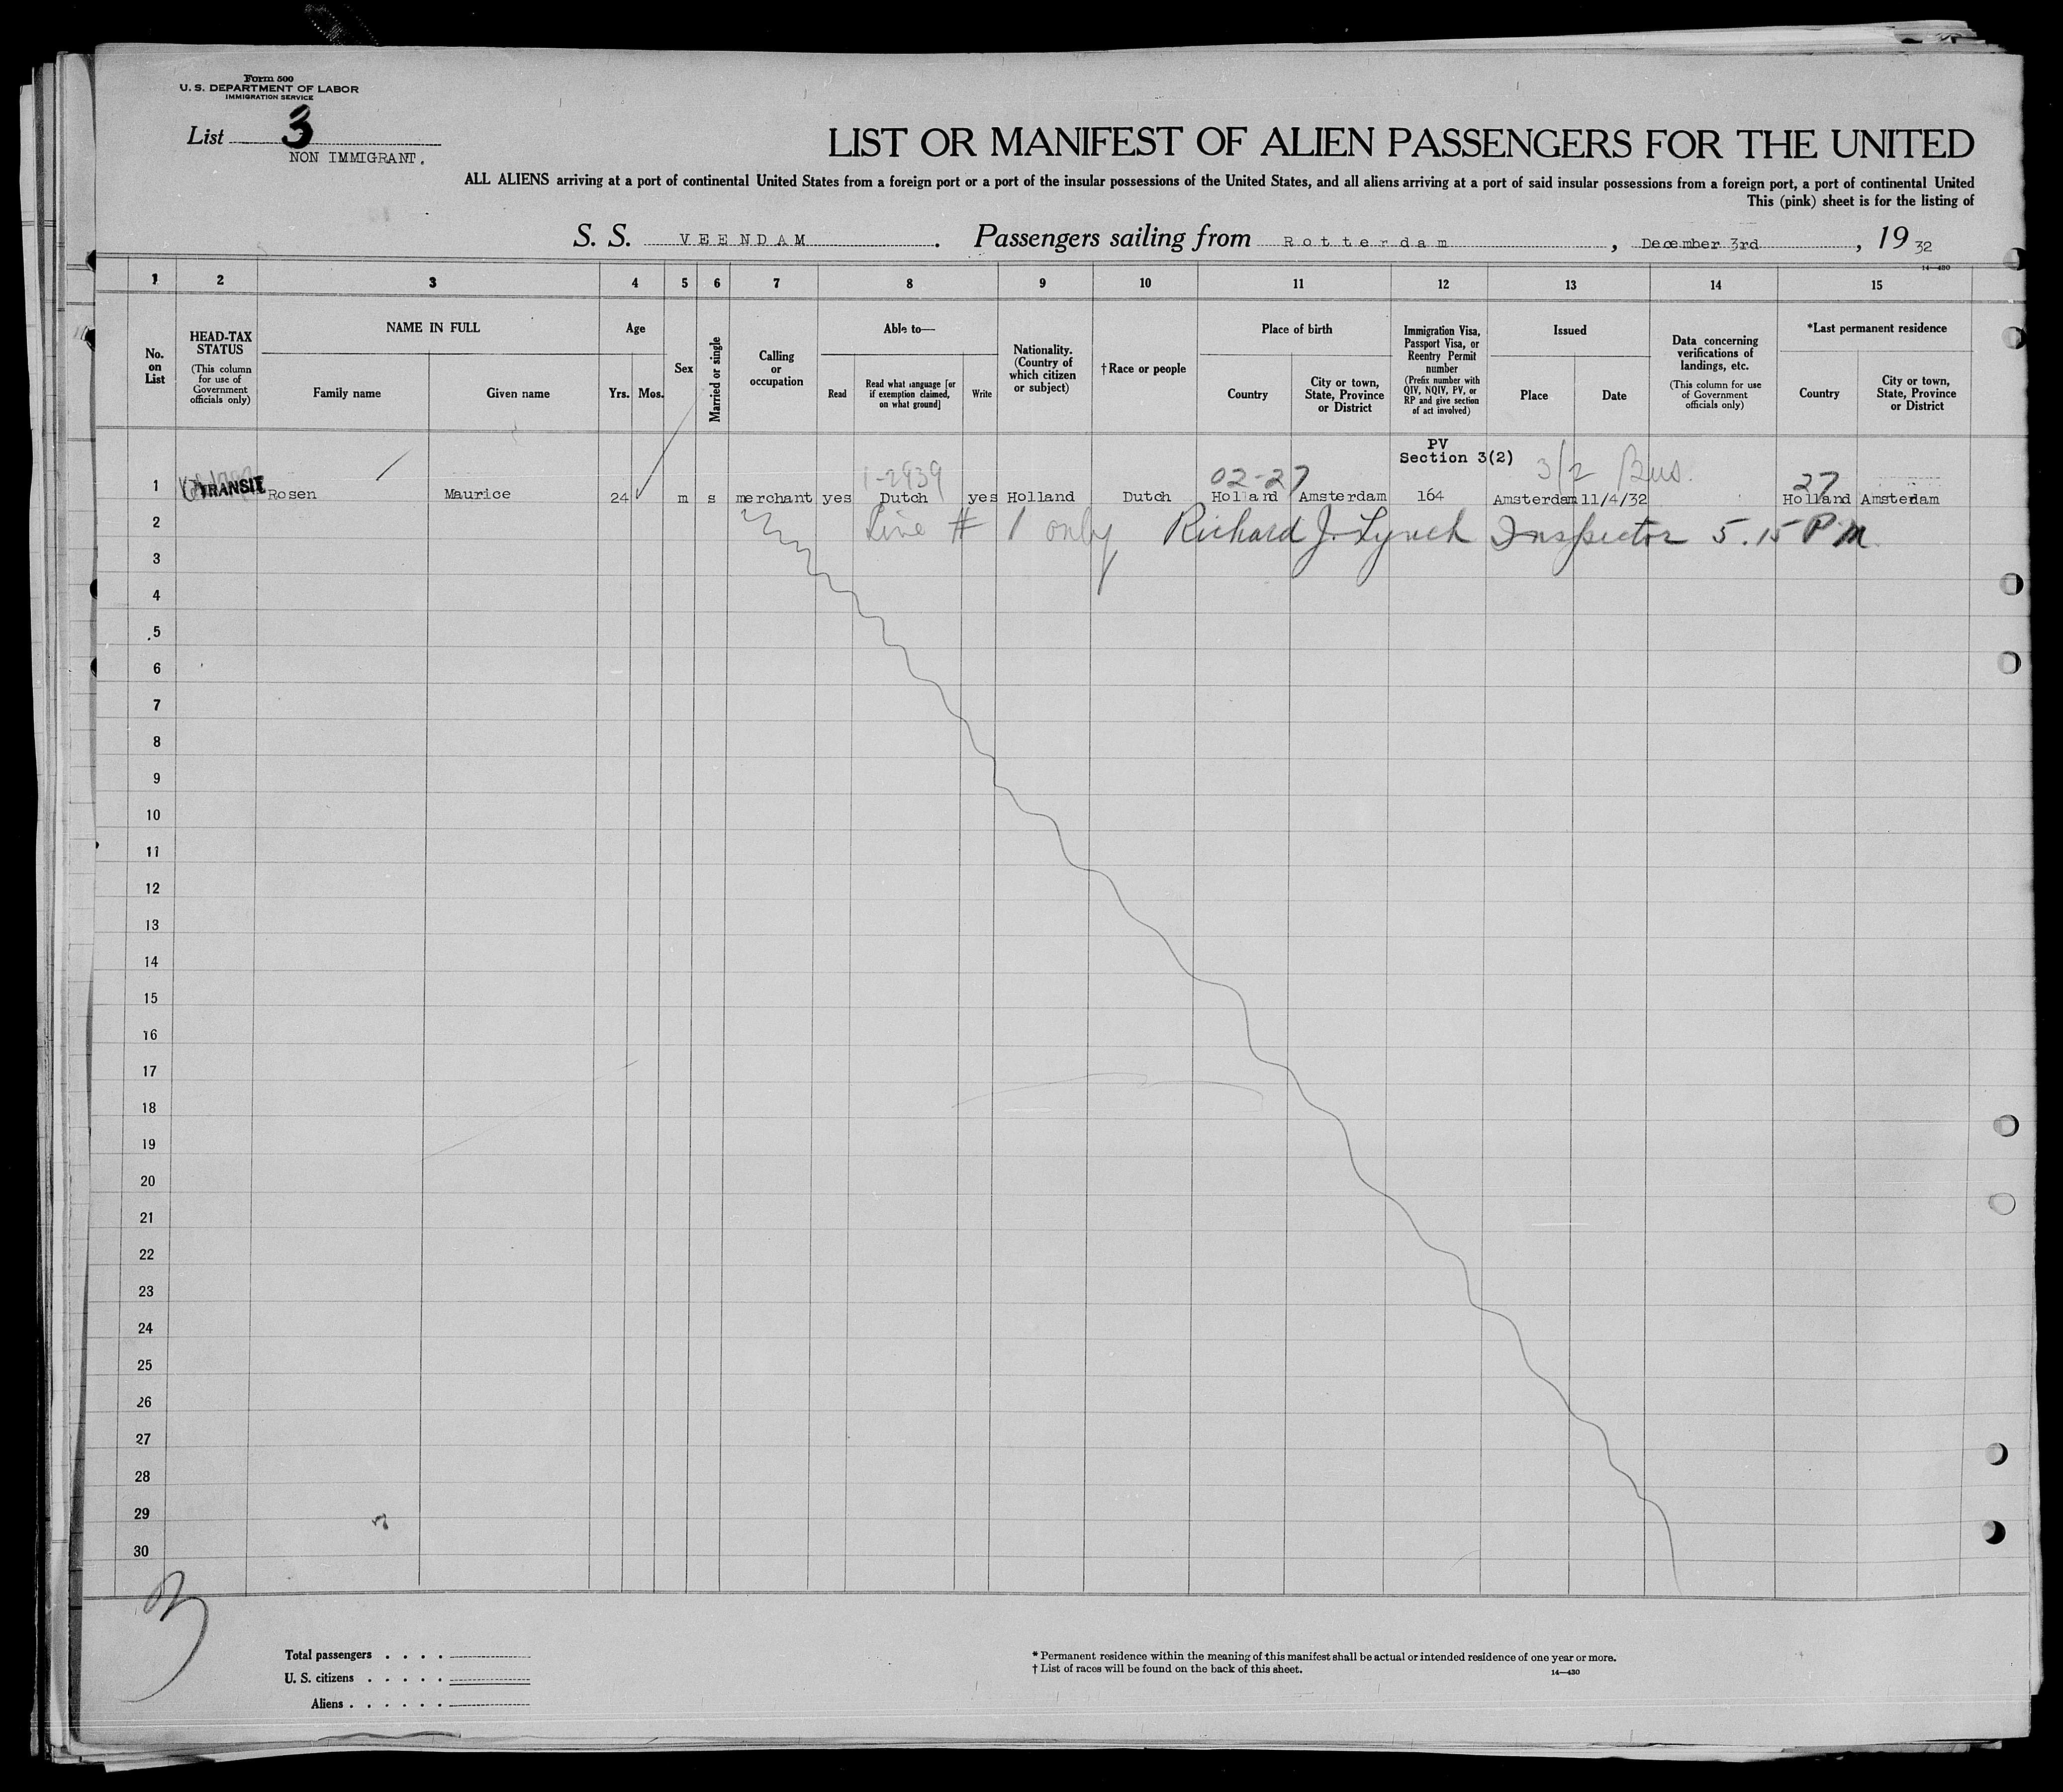 Form 500
U. S. DEPARTMENT OF LABOR
IMMIGRATION SERVICE
List 3
NON IMMIGRANT.
LIST OR MANIFEST OF ALIEN PASSENGERS FOR THE UNITED
ALL ALIENS arriving at a port of continental United States from a foreign port or a port of the insular possessions of the United States, and all aliens arriving at a port of said insular possessions from a foreign port, a port of continental United
This (pink) sheet is for the listing of
S. S. VEENDAM. Passengers sailing from Rotterdam, December 3rd, 1932
14—430
1 2 3 4 5 6 7 8 9 10 11 12 13 14 15
No. on List
HEAD-TAX STATUS
(This column for use of Government officials only)
NAME IN FULL
Family name
Given name
Age
Yrs. Mos.
Sex
Married or single
Calling or occupation
Able to—
Read
Read what language [or if exemption claimed, on what ground]
Write
Nationality. (Country of which citizen or subject)
†Race or people
Place of birth
Country
City or town, State, Province or District
Immigration Visa, Passport Visa, or Reentry Permit number
(Prefix number with QIV, NQIV, PV, or RP and give section of act involved)
Issued
Place
Date
Data concerning verifications of landings, etc.
(This column for use of Government officials only)
*Last permanent residence
Country
City or town, State, Province or District
PV
Section 3(2)
3/2 Bus.
1-2939
02-27
27
1 TRANSIT Rosen Maurice 24 m s merchant yes Dutch yes Holland Dutch Holland Amsterdam 164 Amsterdam 11/4/32 Holland Amsterdam
2 Line # 1 only Richard J. Lynch Inspector 5.15 PM
3
4
5
6
7
8
9
10
11
12
13
14
15
16
17
18
19
20
21
22
23
24
25
26
27
28
29
30
3
Total passengers . . . .
U. S. citizens . . . . .
Aliens . . . . . .
* Permanent residence within the meaning of this manifest shall be actual or intended residence of one year or more.
† List of races will be found on the back of this sheet.
14—430